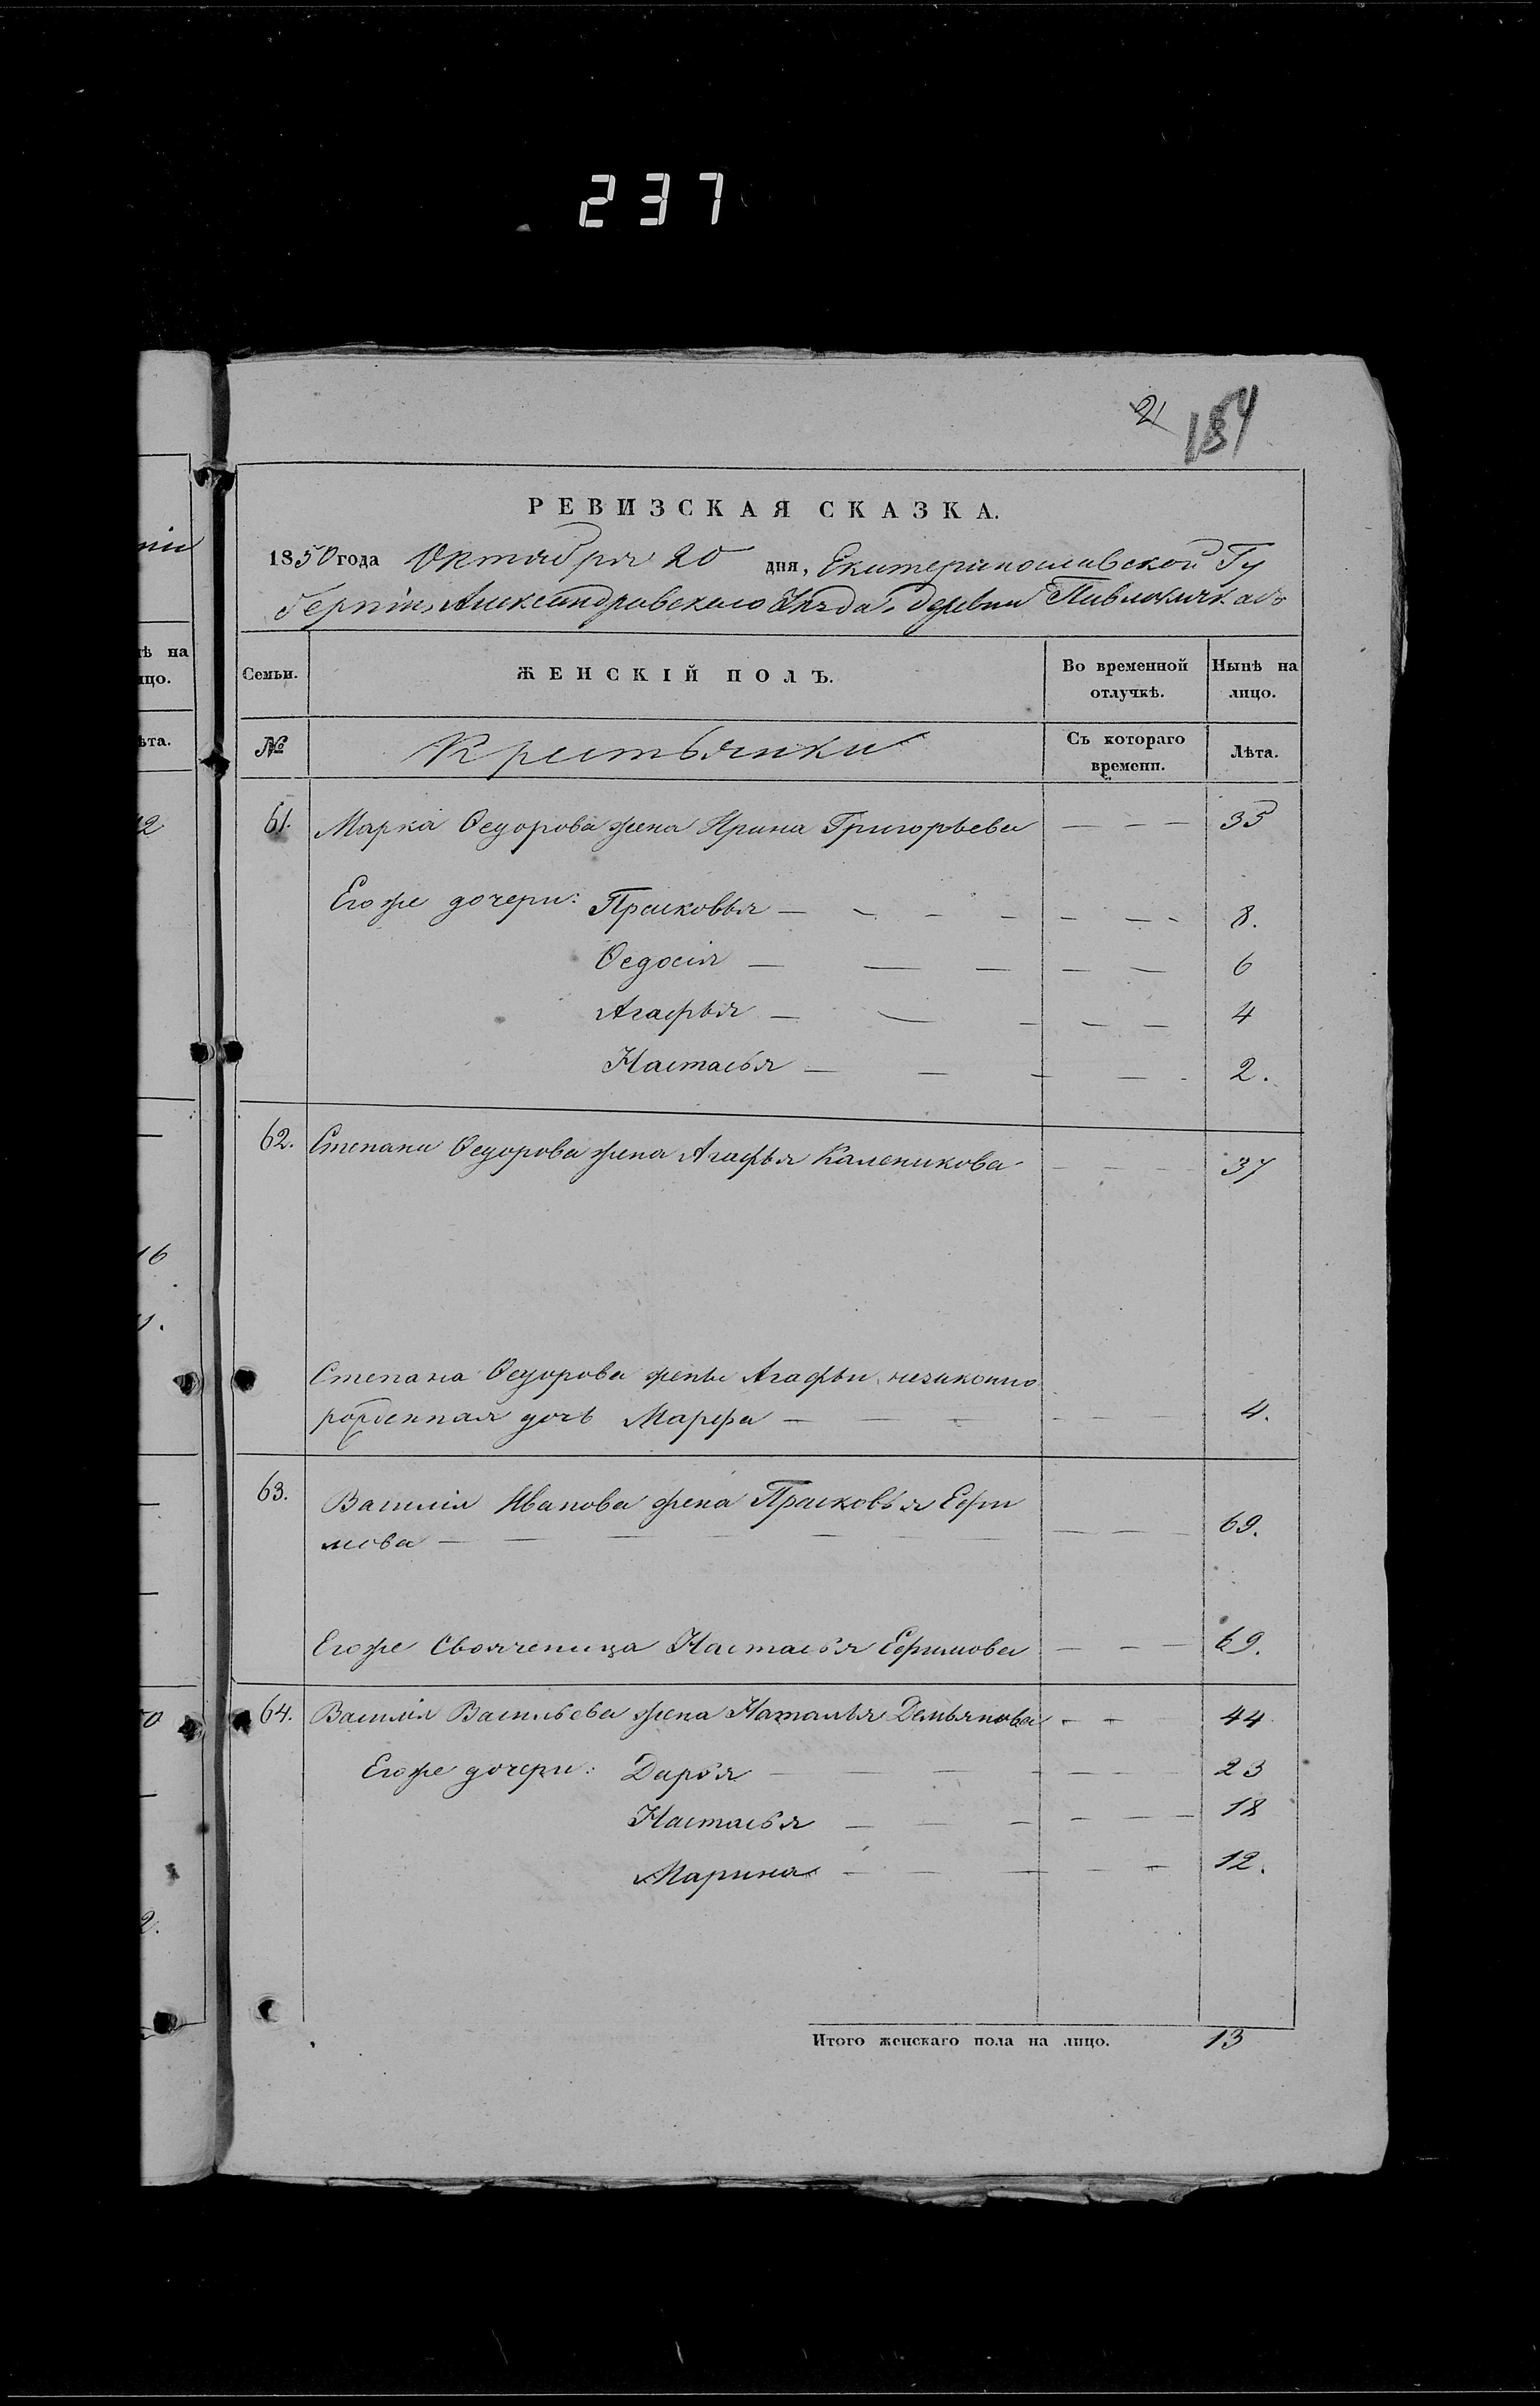 237
21
184
РЕВИЗСКАЯ СКАЗКА.
1850 года Октября 20 дня, Екатеринославской Гу
берніи, Александровскаго Уѣзда, деревни Павлокичкасъ
Семьи. ЖЕНСКІЙ ПОЛЪ. Во временной отлучкѣ. Нынѣ на лицо.
№ Крестьянки Съ котораго времени. Лѣта.
61. Марка Ѳедорова жена Ирина Григорьева — — — 35
Его же дочери: Прасковья — — — — — — — 8.
Ѳедосія — — — — — 6
Агафья — — — — — 4
Настасья — — — — - 2.
62. Степана Ѳедорова жена Агафья Каленикова — — — 37
Степана Ѳедорова жены Агафьи незаконно
рожденная дочь Марфа — — — — — — 4.
63. Василія Иванова жена Прасковья Ефи
мова — — — — — — — — 69.
Его же Свояченица Настасья Ефимова — — — 69.
64. Василія Васильева жена Наталья Демьянова — — 44
Его же дочери: Дарья — — — — — — — 23
Настасья — — — — — — 18
Марина — — — — — 12.
Итого женскаго пола на лицо. 13
ніи
ѣ на
цо.
ѣта.
2
16
1.
0
2.